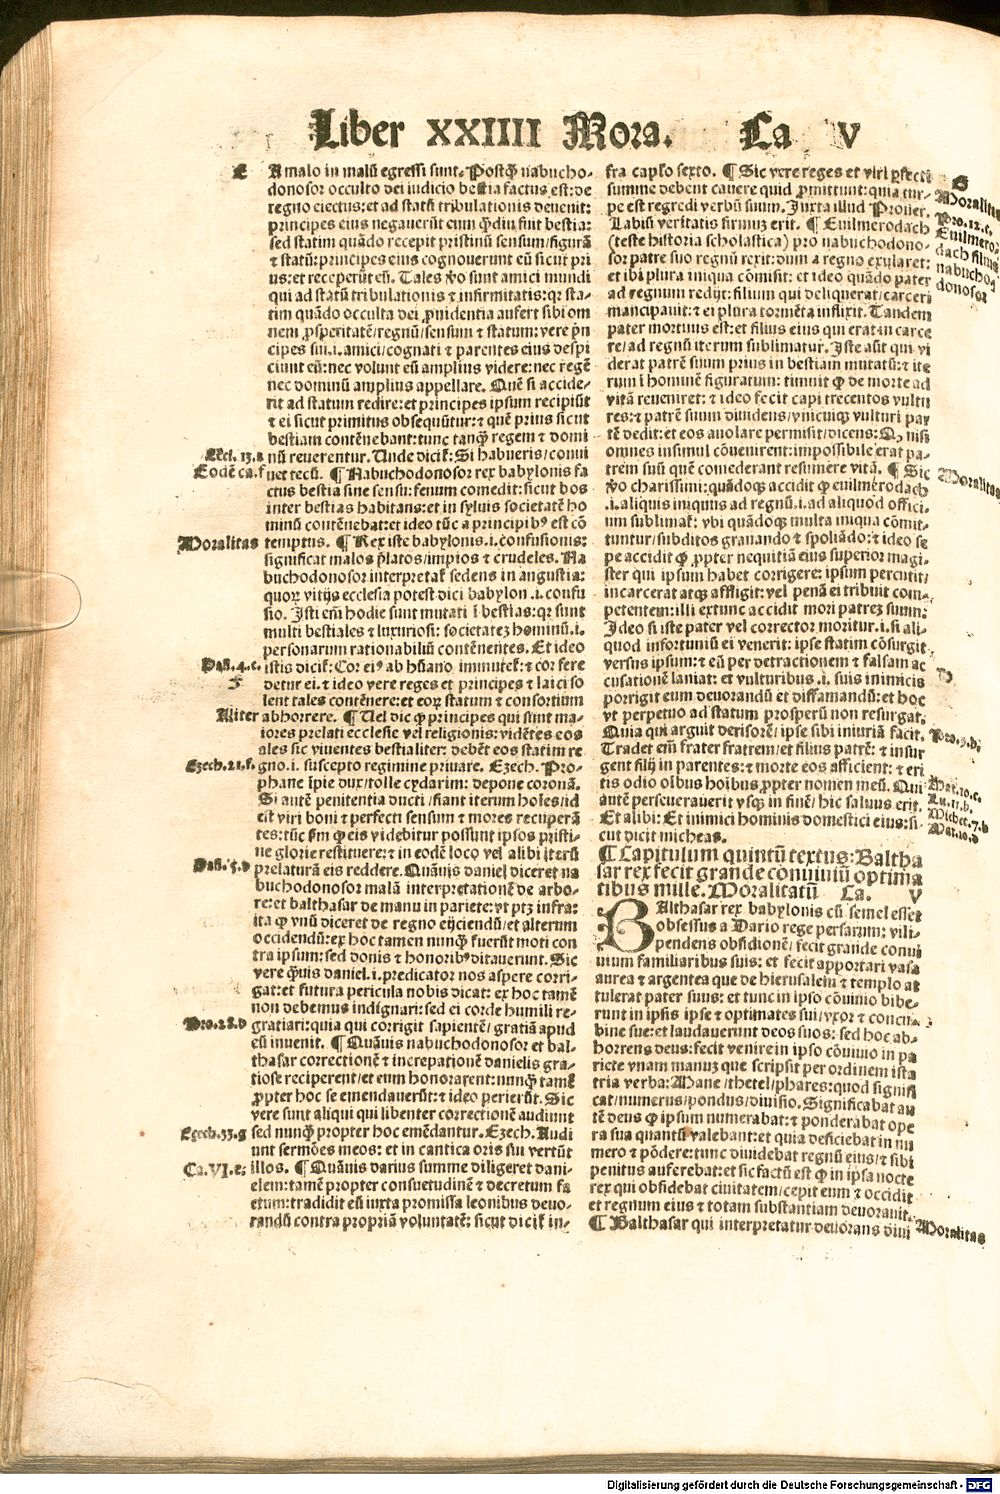 Liber XXIIII Mora. Ca V
E
A malo in malū egressi sunt. Postq̄ nabucho-
donosor occulto dei iudicio bestia factus est: de
regno eiectus: et ad statū tribulationis deuenit:
principes eius negauerūt eum q̄diu fuit bestia:
sed statim quādo recepit pristinū sensum/figurā
⁊ statū: principes eius cognouerunt eū sicut pri
us: et receperūt eū. Tales v̄o sunt amici mundi
qui ad statū tribulationis ⁊ infirmitatis: qꝛ sta-
tim quādo occulta dei ꝓuidentia aufert sibi om
nem ꝓsperitatē/regnū/sensum ⁊ statum: vere p̄n
cipes sui .i. amici/cognati ⁊ parentes eius despi
ciunt eū: nec volunt eū amplius videre: nec regē
nec dominū amplius appellare. Quē si accide-
rit ad statum redire: et principes ipsum recipiūt
⁊ ei sicut primitus obsequūtur: ⁊ quē prius sicut
bestiam contēnebant: tunc tanq̄ regem ⁊ domi
Eccl. 13. a
nū reuerentur. Unde dicit: Si habueris/conui
Eodē ca. f
uet tecū. ¶ Nabuchodonosor rex babylonis fa
ctus bestia sine sensu: fenum comedit: sicut bos
inter bestias habitans: et in syluis societatē ho
minū contēnebat: et ideo tūc a principibꝰ est cō
Moralitas
temptus. ¶ Rex iste babylonis .i. confusionis:
significat malos p̄latos/impios ⁊ crudeles. Na
buchodonosor interpretat sedens in angustia:
quoꝝ vitijs ecclesia potest dici babylon .i. confu
sio. Isti em̄ hodie sunt mutati ī bestias: qꝛ sunt
multi bestiales ⁊ luxuriosi: societatez hominū .i.
personarum rationabiliū contēnentes. Et ideo
Dañ. 4. c.
istis dicit: Cor eiꝰ ab hūano immutet: ⁊ cor fere
F
detur ei. ⁊ ideo vere reges et principes ⁊ laici so
lent tales contēnere: et eoꝝ statum ⁊ consortium
Aliter
abhorrere. ¶ Uel dic ꝙ principes qui sunt ma-
iores prelati ecclesie vel religionis: vidētes eos
ales sic viuentes bestialiter: debēt eos statim re
Ezech. 21. f.
gno .i. suscepto regimine priuare. Ezech. Pro-
phane īpie dux/tolle cydarim: depone coronā.
Si autē penitentia ducti/fiant iterum hoīes/id
est viri boni ⁊ perfecti sensum ⁊ mores recuperā
tes: tūc fm ꝙ eis videbitur possunt ipsos pristi-
ne glorie restituere: ⁊ in eodē loco vel alibi iterū
Dañ. 5. d
prelaturā eis reddere. Quāuis daniel diceret na
buchodonosor malā interpretationē de arbo-
re: et balthasar de manu in pariete: vt ptz infra:
ita ꝙ vnū diceret de regno eijciendū/et alterum
occidendū: ex hoc tamen nunq̄ fuerūt moti con
tra ipsum: sed donis ⁊ honoribꝰ ditauerunt. Sic
vere q̄uis daniel .i. predicator nos aspere corri-
gat: et futura pericula nobis dicat: ex hoc tamē
non debemus indignari: sed ei corde humili re-
Pro. 28. d
gratiari: quia qui corrigit sapientē/ gratiā apud
eū inuenit. ¶ Quāuis nabuchodonosor et bal-
thasar correctionē ⁊ increpationē danielis gra-
tiose reciperent/et eum honorarent: nunq̄ tamē
ꝓpter hoc se emendauerūt: ⁊ ideo perierūt. Sic
vere sunt aliqui qui libenter correctionē audiunt
Ezech. 33. g
sed nunq̄ propter hoc emēdantur. Ezech. Audi
unt sermōes meos: et in cantica oris sui vertūt
Ca. VI. e:
illos. ¶ Quāuis darius summe diligeret dani-
elem: tamē propter consuetudinē ⁊ decretum fa
ctum: tradidit eū iuxta promissa leonibus deuo-
randū contra propriā voluntatē: sicut dicit in-
fra capło sexto. ¶ Sic vere reges et viri ꝑfecti
G
summe debent cauere quid ꝓmittunt: quia tur-
Moralitas
pe est regredi verbū suum. Iuxta illud Prouer.
Pro. 12. c.
Labiū veritatis firmuz erit. ¶ Euilmerodach
Euilmero-
dach filius
nabucho
donosor
(teste historia scholastica) pro nabuchodono-
sor patre suo regnū rexit: dum a regno exularet:
et ibi plura iniqua cōmisit: et ideo quādo pater
ad regnum redijt: filium qui deliquerat/carceri
mancipauit: ⁊ ei plura tormēta inflixit. Tandem
pater mortuus est: et filius eius qui erat in carce
re/ad regnū iterum sublimatur. Iste aūt qui vi
derat patrē suum prius in bestiam mutatū: ⁊ ite
rum ī hominē figuratum: timuit ꝙ de morte ad
vitā reueniret: ⁊ ideo fecit capi trecentos vultu
res: ⁊ patrē suum diuidens/vnicuiqꝫ vulturi par
tē dedit: et eos auolare permisit/dicens: Qꝫ nisi
omnes insimul cōuenirent: impossibile erat pa-
trem suū quē comederant resumere vitā. ¶ Sic
Moralitas
v̄o charissimi: quādoqꝫ accidit ꝙ euilmerodach
.i. aliquis iniquus ad regnū .i. ad aliquod offici-
um sublimat: vbi quādoqꝫ multa iniqua cōmit-
tuntur/subditos grauando ⁊ spoliādo: ⁊ ideo se
pe accidit ꝙ ꝓpter nequitiā eius superior magi-
ster qui ipsum habet corrigere: ipsum percutit/
incarcerat atqꝫ affligit: vel penā ei tribuit com-
petentem: illi extunc accidit mori patrez suum:
Ideo si iste pater vel corrector moritur .i. si ali-
quod infortuniū ei venerit: ipse statim cōsurgit
versus ipsum: ⁊ eū per detractionem ⁊ falsam ac
cusationē laniat: et vulturibus .i. suis inimicis
porrigit eum deuorandū et diffamandū: et hoc
vt perpetuo ad statum prosperū non resurgat.
Quia qui arguit derisorē/ipse sibi iniuriā facit.
Pro. 9. b.
Tradet em̄ frater fratrem/et filius patrē: ⁊ insur
gent filij in parentes: ⁊ morte eos afficient: ⁊ eri
tis odio oībus hoībus ꝓpter nomen meū. Qui
Mat. 10. c.
autē perseuerauerit vsqꝫ in finē/ hic saluus erit.
Et alibi: Et inimici hominis domestici eius: si-
Michee. 7. b
Mat. 10. d
cut dicit micheas.
¶ Capitulum quintū textus: Baltha
sar rex fecit grande conuiuiū optima
tibus mille. Moralitatū Ca. V
BAlthasar rex babylonis cū semel esset
obsessus a Dario rege persarum: vili-
pendens obsidionē/ fecit grande conui
uium familiaribus suis: et fecit apportari vasa
aurea ⁊ argentea que de hierusalem ⁊ templo at
tulerat pater suus: et tunc in ipso cōuiuio bibe-
runt in ipsis ipse ⁊ optimates sui/vxor ⁊ concu-
bine sue: et laudauerunt deos suos: sed hoc ab-
horrens deus: fecit venire in ipso cōuiuio in pa
riete vnam manuz que scripsit per ordinem ista
tria verba: Mane/thetel/phares: quod signifi
cat/numerus/pondus/diuisio. Significabat au
tē deus ꝙ ipsum numerabat: ⁊ ponderabat ope
ra sua quantū valebant: et quia deficiebat in nu
mero ⁊ pōdere: tunc diuidebat regnū eius/⁊ sibi
penitus auferebat: et sic factū est ꝙ in ipsa nocte
rex qui obsidebat ciuitatem/cepit eum ⁊ occidit
et regnum eius ⁊ totam substantiam deuorauit.
¶ Balthasar qui interpretatur deuorans diui
Moralitas
Digitalisierung gefördert durch die Deutsche Forschungsgemeinschaft - DFG